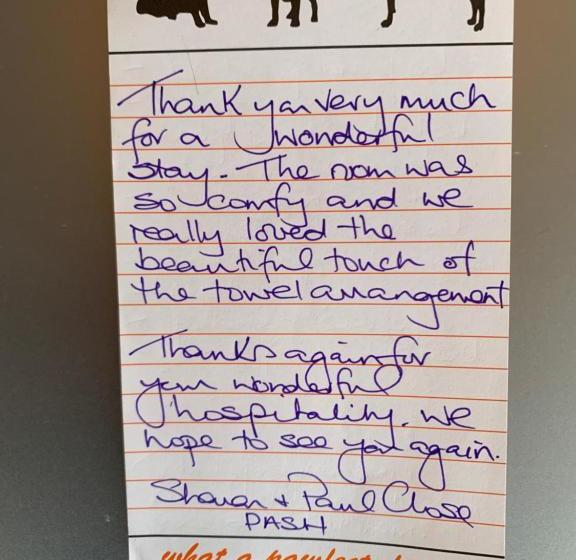 Thank you very much
for a wonderful
stay. The room was
so comfy and we
really loved the
beautiful touch of
the towel arrangement
Thanks again for
your wonderful
hospitality. We
hope to see you again.
Sharon + Paul Close
PASH
what a